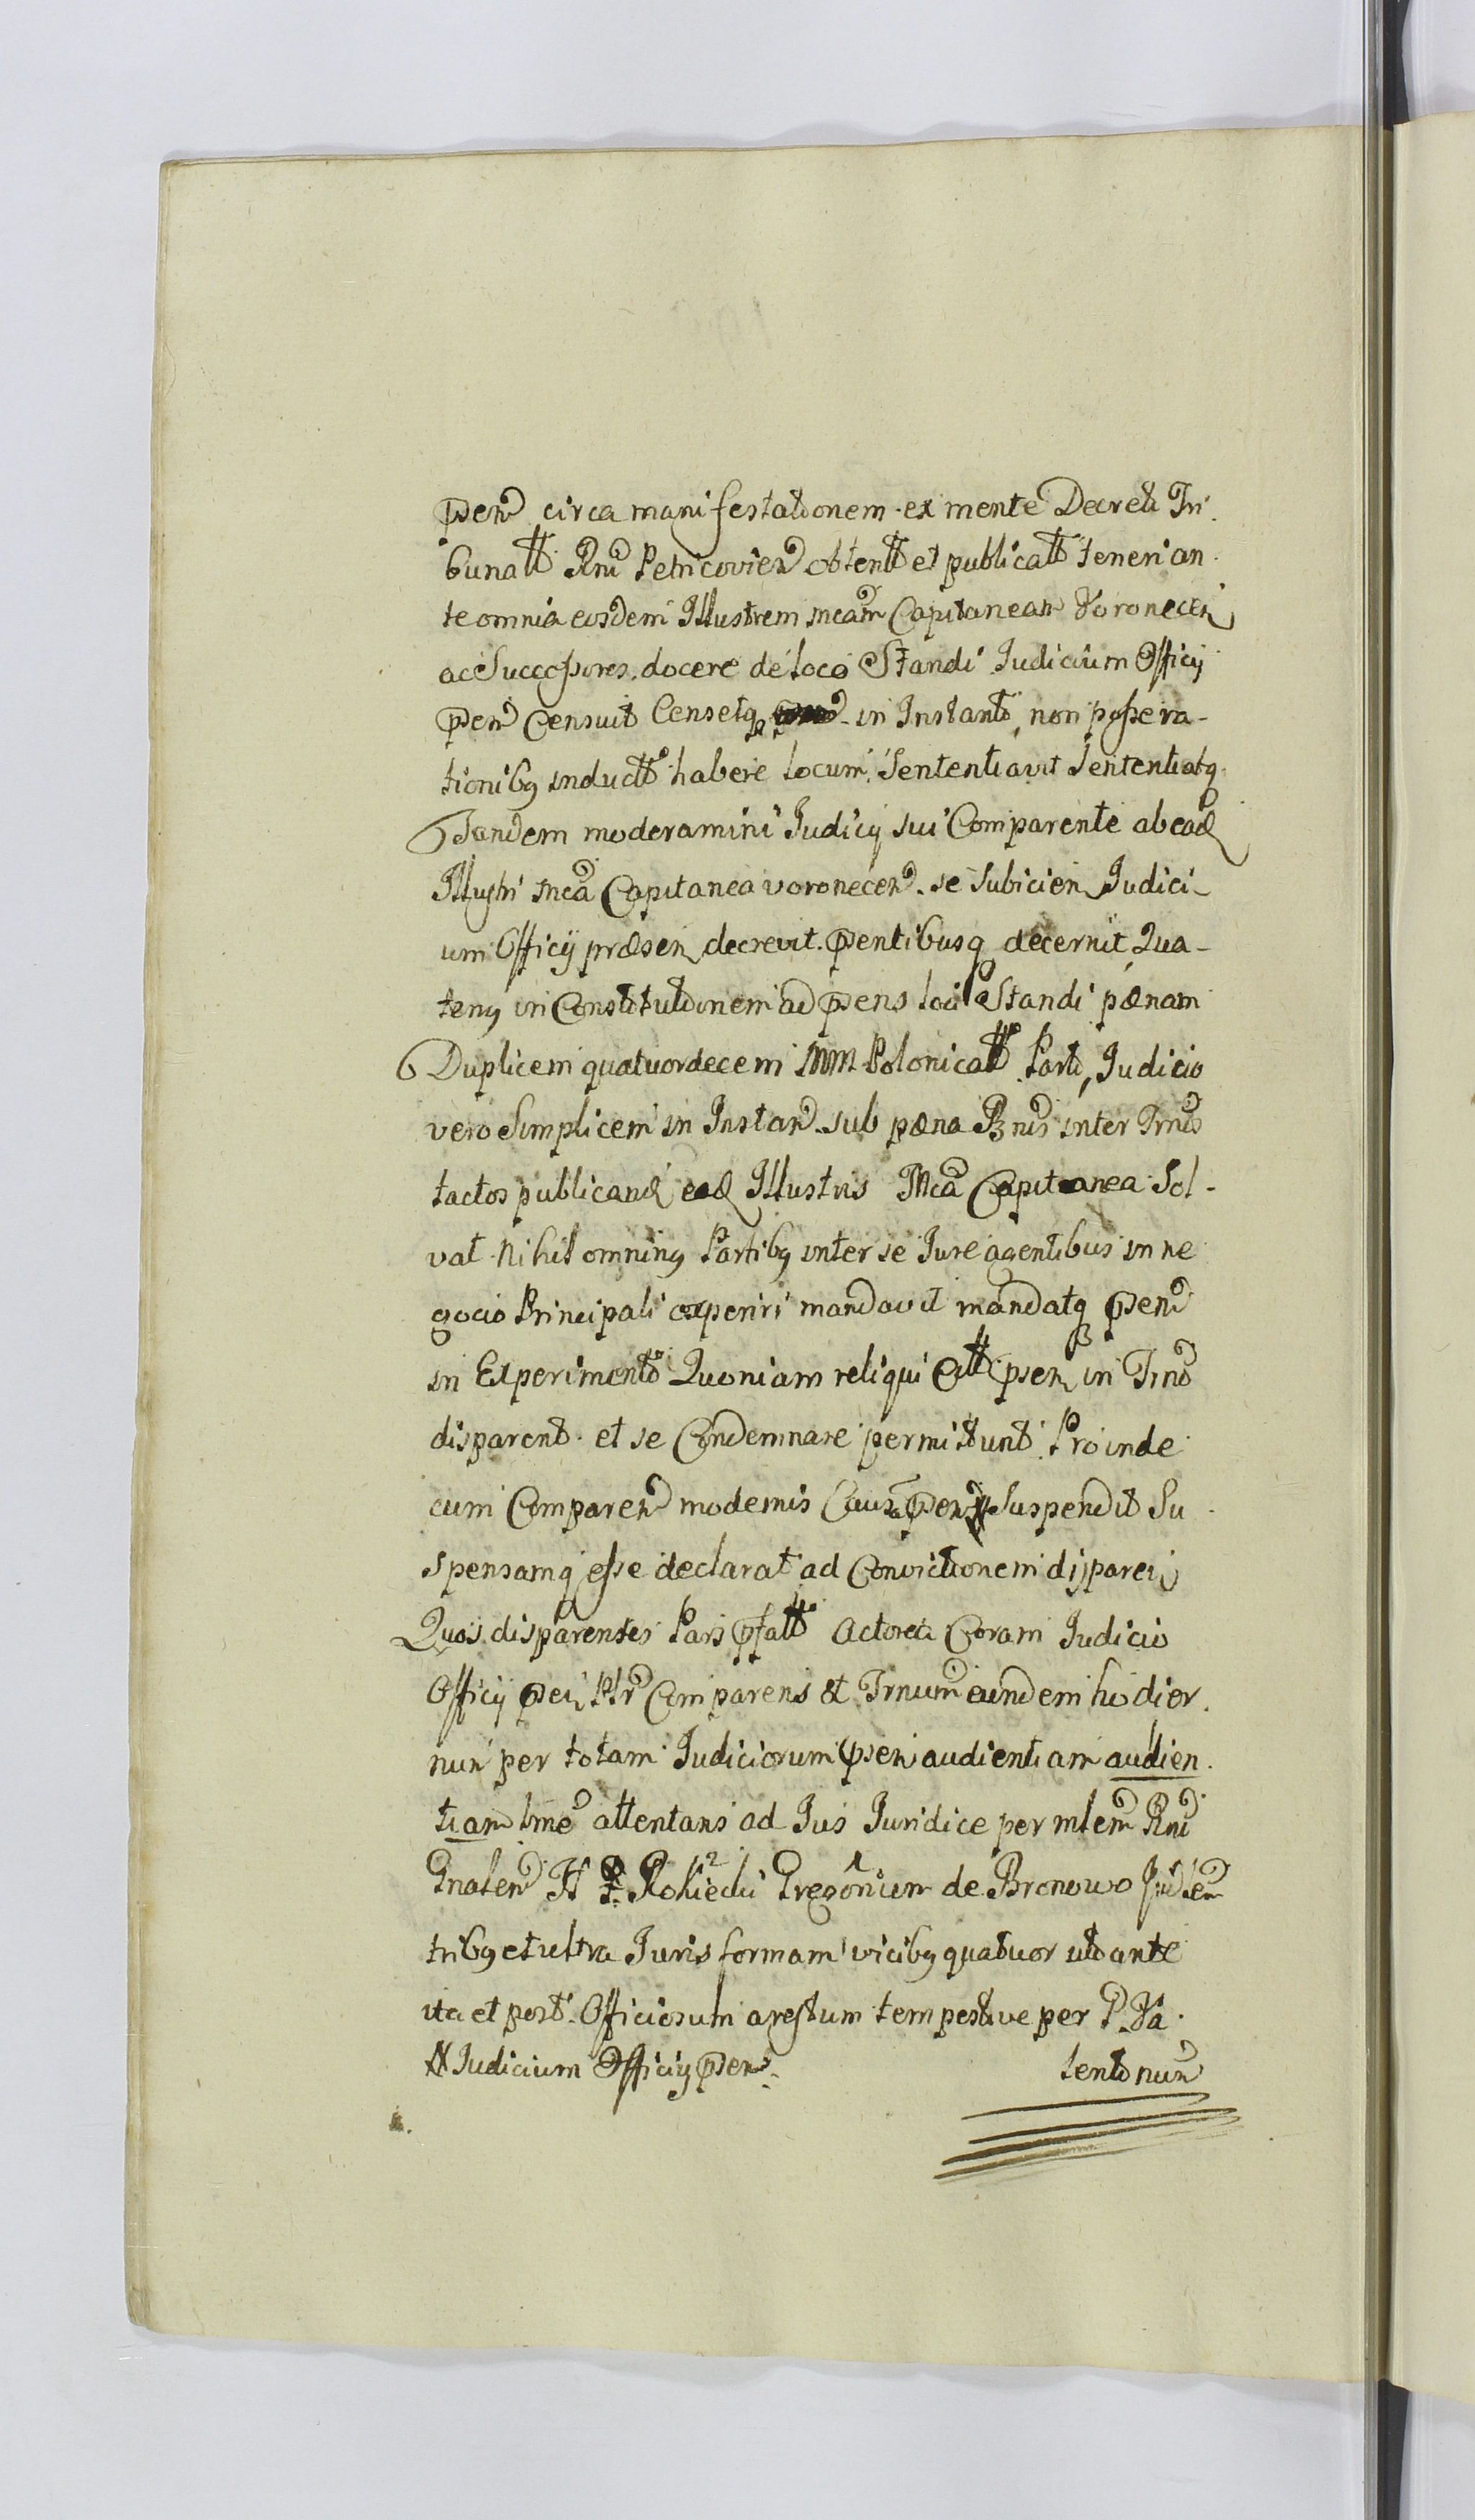 psen circa manifestationem ex mente Decreti Tri
bunatt Rni Petricovien obtentt et publicatt teneri an
te omnia eosdem Illustrem mcam Capitaneam Voronecen
ac Successores docere de loco Standi Judicium Officij
psen Censuit Censetq in Instanti, non posse ra-
tionibq inductt habere locum. Sententiavit Sententiatq
Tandem moderamini Judicij sui Comparente ab ead
Illustri mca Capitanea voronecen se subicien Judici-
um Officij præsen decrevit psentibusq decernit Qua-
tenq in Constitutionem ad psens loci Standi pænam
Duplicem quatuordecem MM Polonicatt Parti, Judicio
vero Simplicem in Instan sub pæna Bnis inter Trnos
tactos publicand ead Illustris Mca Capitanea Sol-
vat Nihil omninq Partibq inter se Jure agentibus in ne
gocio Principali experiri mandavit mandatq psen
in Experimento Quoniam reliqui Citt psen in Trno
disparent et se Condemnare permittunt Proinde
cum Comparen modernis Caus psen Suspendit Su
spensamq esse declarat ad Convictionem disparen
Quos disparentes Pars pfatt Actorea Coram Judicio
Officij psen Ptr Comparens et Trnum eundem hodier
nun per totam Judiciorum psen audientiam audien
tiam lme attentans ad Jus Juridice per mlem Rni
Gnalen H Rokicki Gregorium de Bronowo
tribq et ultra Juris formam vicibq quatuor uti ante
ita et post Officiosum arestum tempestive per P. Va
# Judicium Officij psen
lentinun